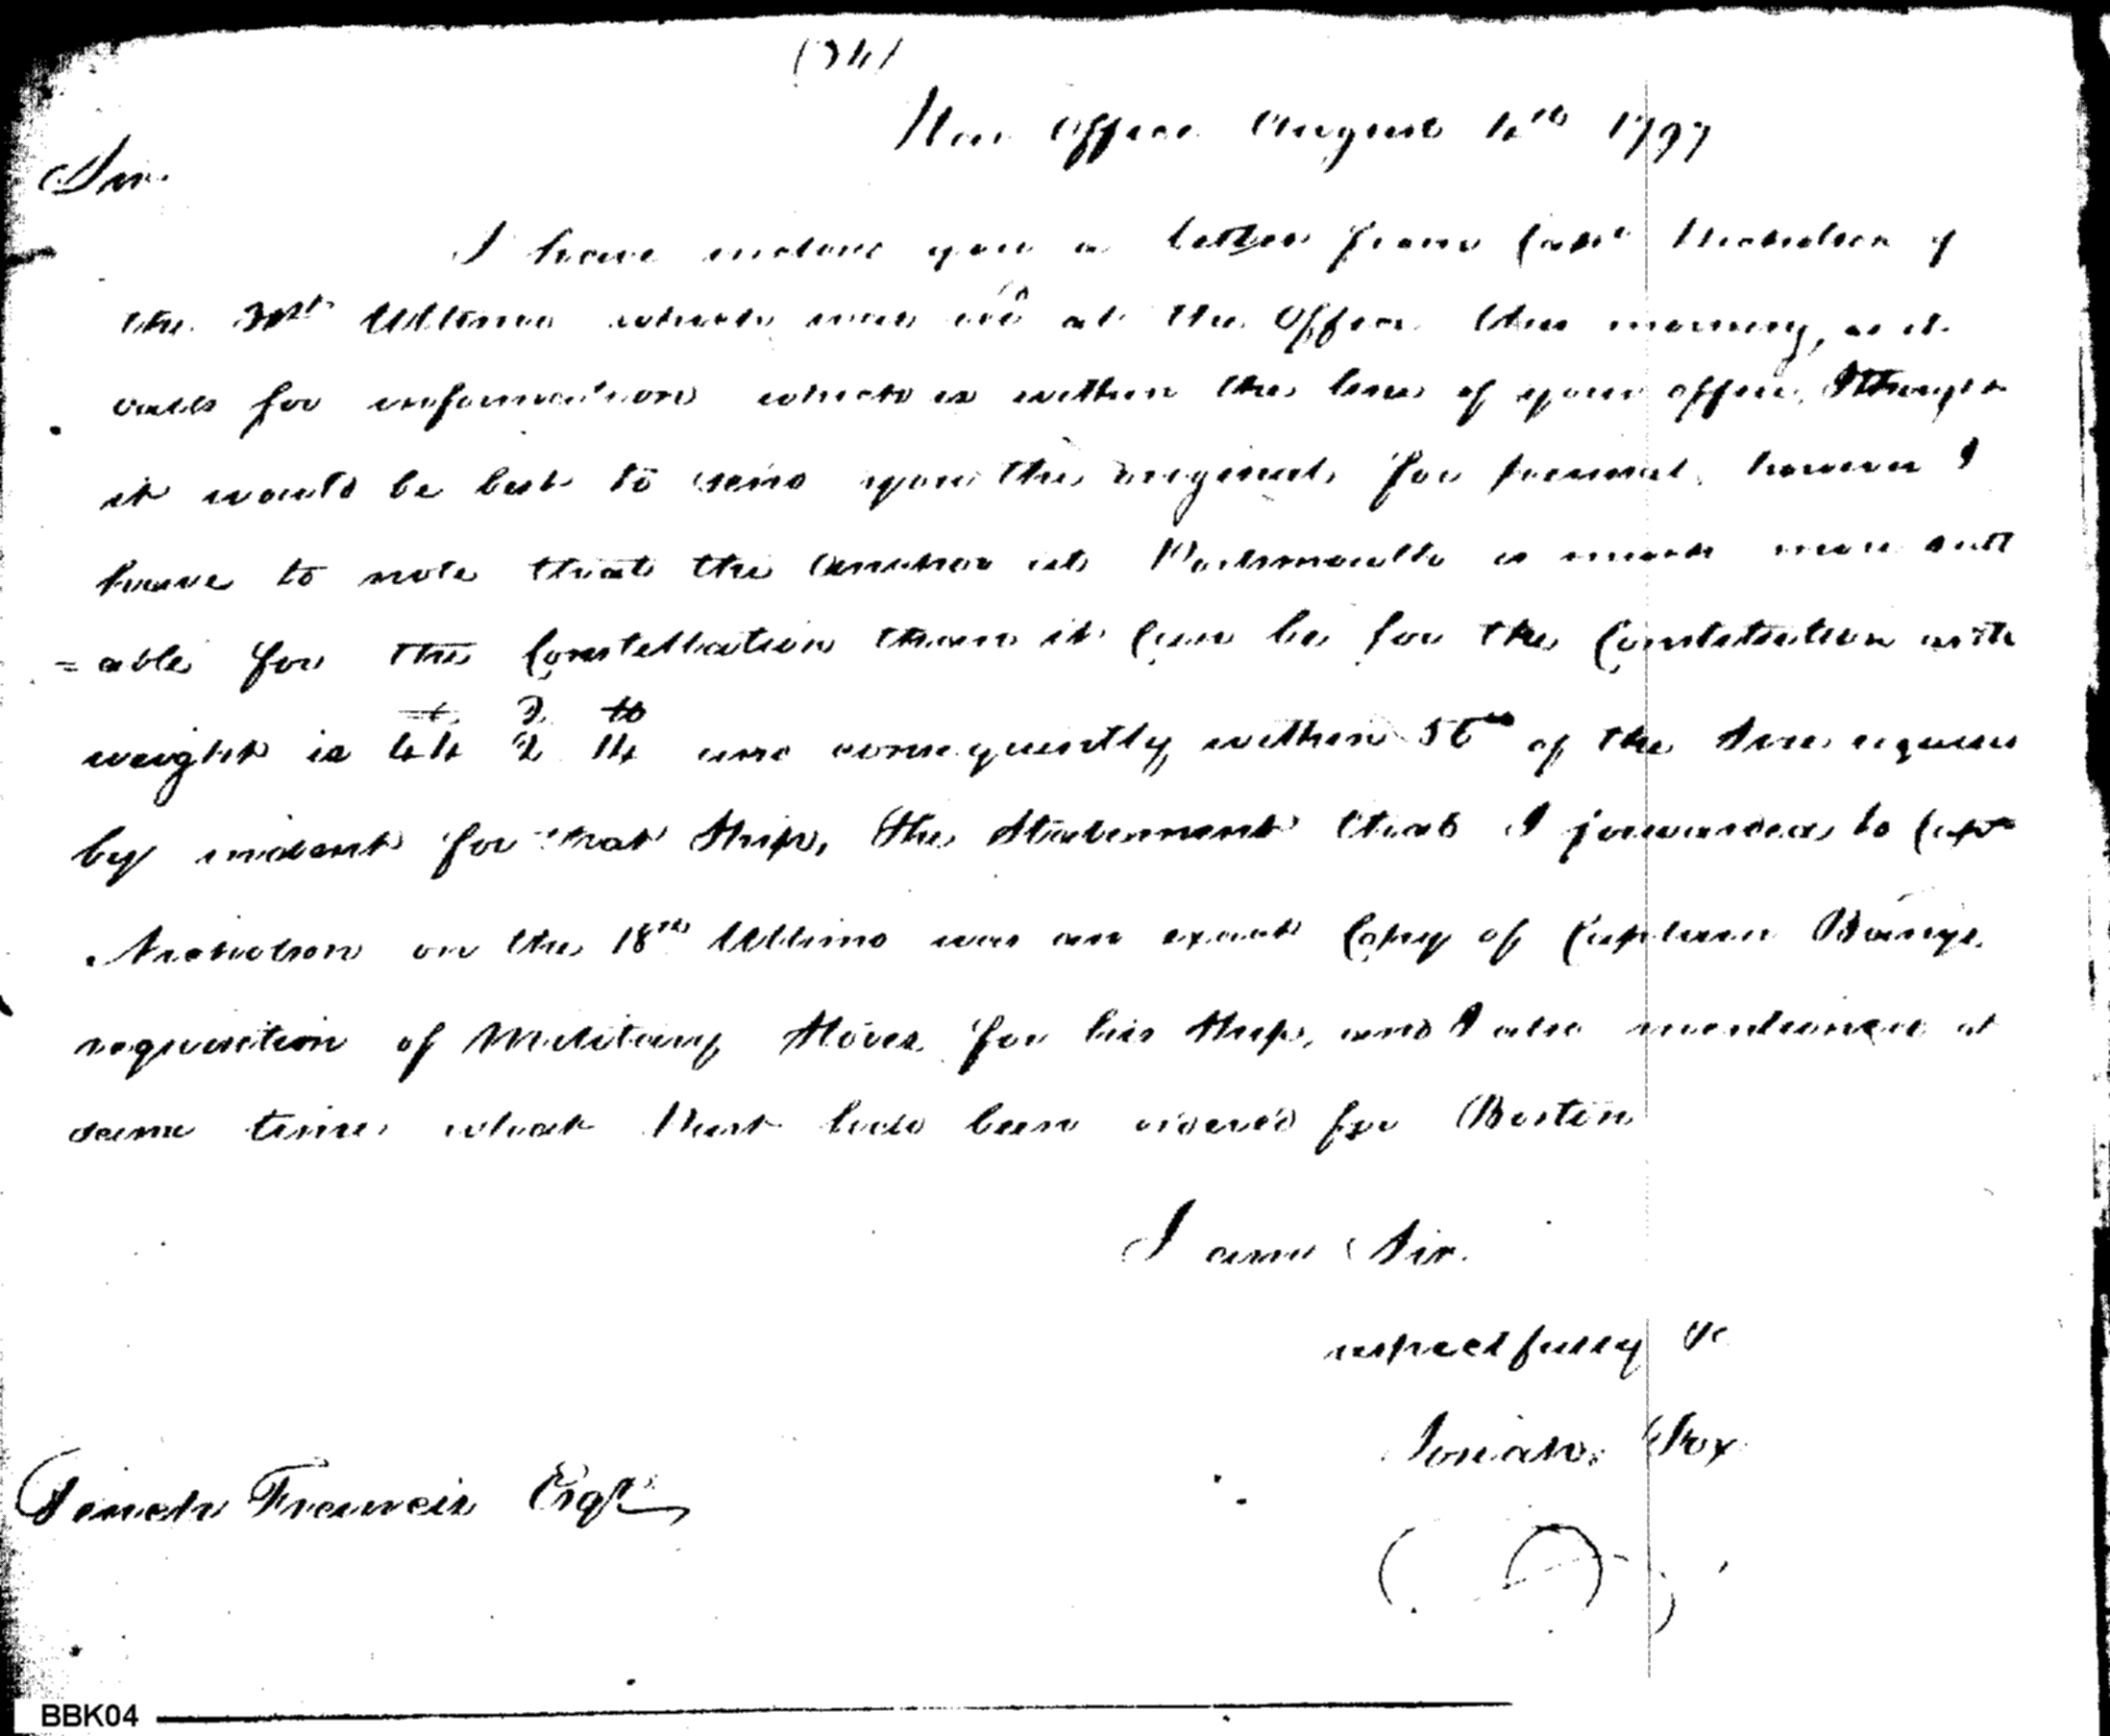 (34)
War Office August 4th 1797
Sir
I have inclosed you a letter from Capt Nicholson of
the 31st Ultimo which was recd at the Office this morning, as it
calls for information which is within the line of your office, I thought
it would be best to send you the original for perusal, however I
have to note that the anchor at Portsmouth is much more suit
=able for the Constellation than it can be for the Constitution as the
weight is 44 2 14 and consequently within of the Size required
by indent for that Ship, the Statement that I forwarded to Capt
Nicholson on the 18th Ultimo was an exact Copy of Captain
requisition of Military Stores for his Ship, and I also mentioned at
same time what had been ordered for Boston
I am Sir
respectfully &c
Josiah Fox
Tench Francis Esqr
BBK04